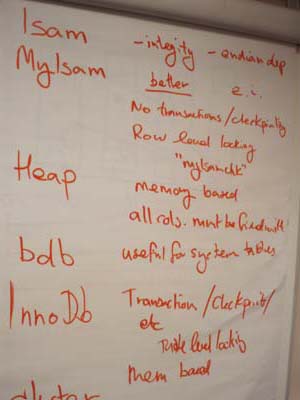 Isam - integity - endian dep
MyIsam better e.i.
No transactions/checkpintig
Row level locking
"myIsamchk"
Heap memory based
all cols. must be fixed width
bdb useful for system tables
InnoDb Transaction/Checkpoint/
etc
Table level locking
mem based